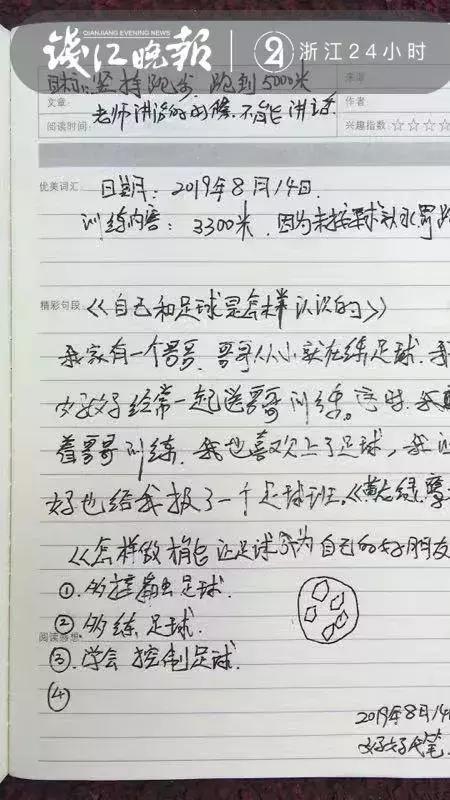 钱江晚报
QIANJIANG EVENING NEWS
浙江24小时
目标:坚持跑步,跑到5000米
来源
文章:
老师讲话的时候,不能讲话
作者
阅读时间:
兴趣指数:☆☆☆☆
优美词汇
日期:2019年8月14日.
训练内容:3300米,因为未按要求
精彩句段
《自己和足球是怎样认识的》
我家有一个哥哥,哥哥从小就在练足球.我
经常一起送哥哥训练。
着哥哥训练.我也喜欢上了足球,我
好也给我报了一个足球班。
《怎样做才能让足球成为自己的好朋友
①.多接触足球.
②多练足球.
阅读感想
③.学会控制足球.
④
2019年8月14
代笔